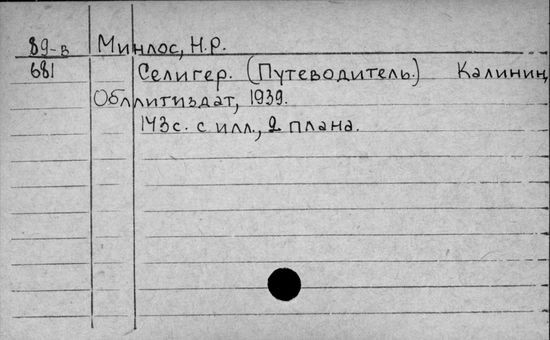 89-в Минлос, Н.Р.
681 Селигер. (Путеводитель.) Калинин,
Облλитиздат, 1939.
143с. с илл., 2 плана.